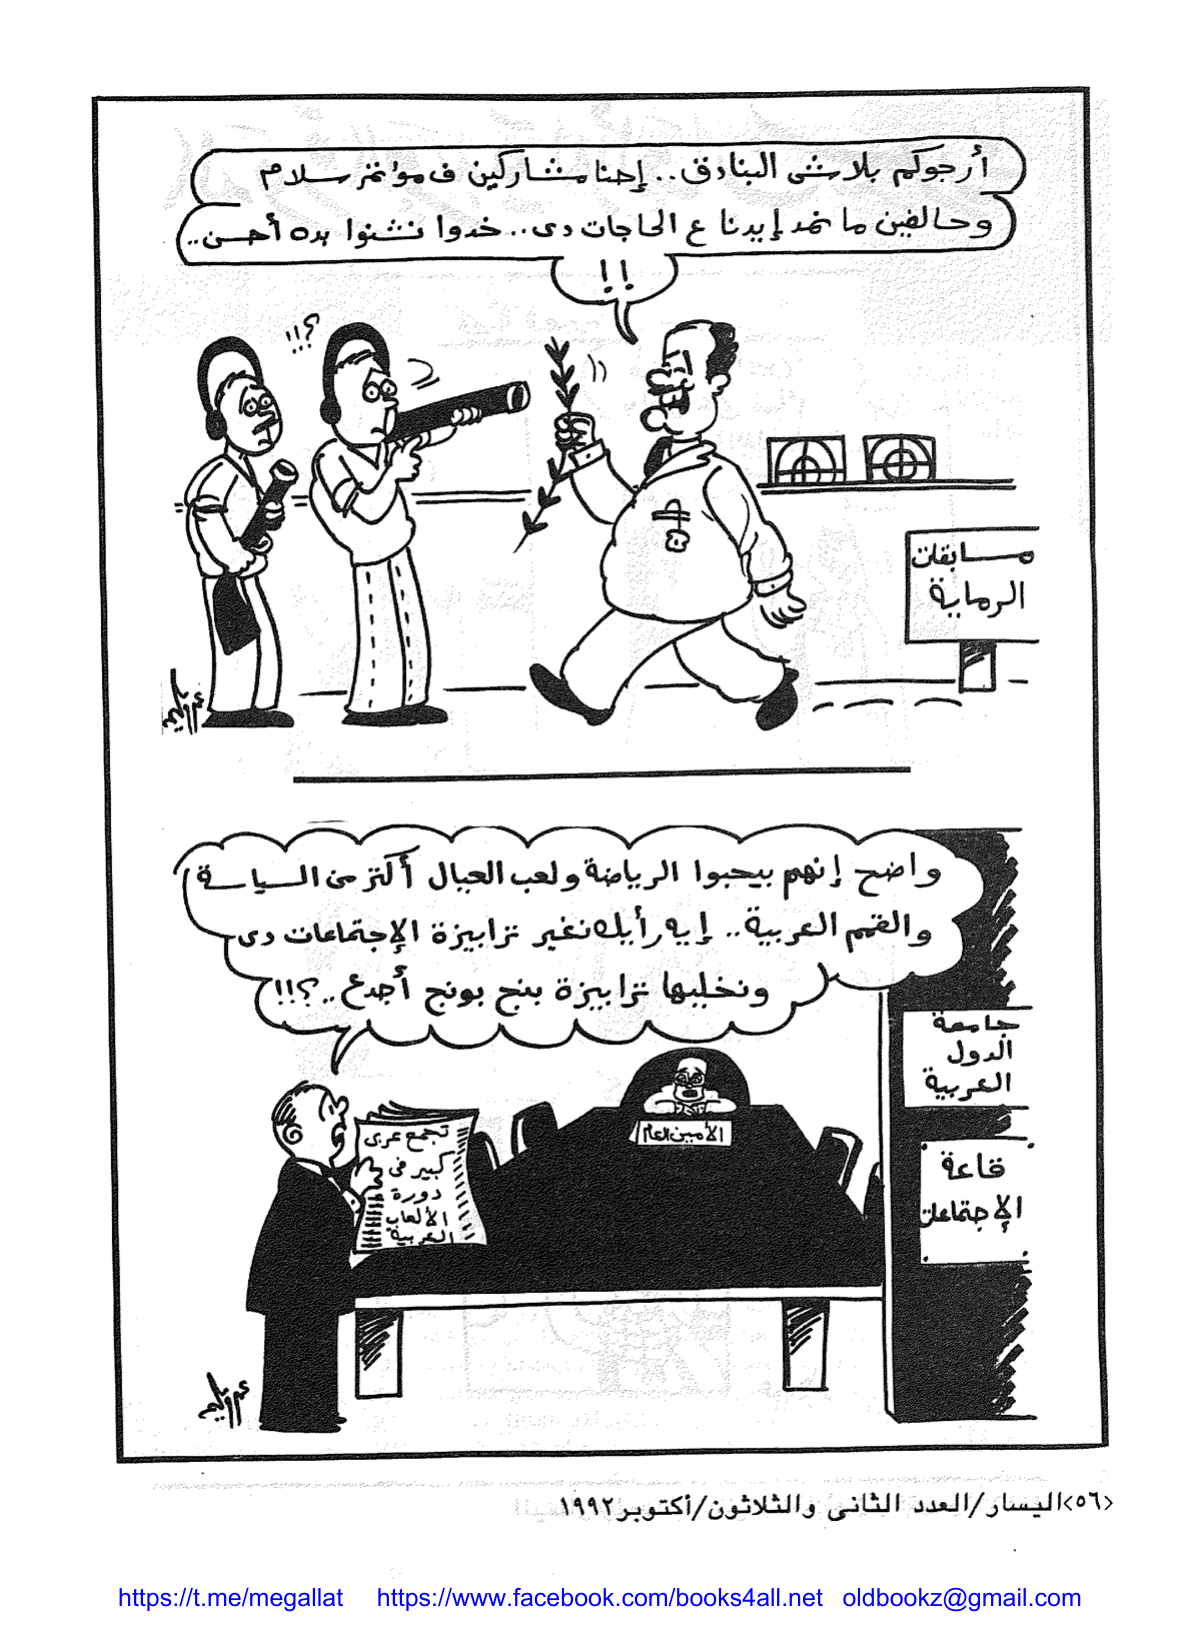 أرجوكم بلاشى البنادق.. إحنا مشاركين ف مؤتمر سلام
وحالفين ما نمد إيدنا ع الحاجات دى.. خدوا نشنوا بده أحسن..
!!
؟!!
مسابقات
الرماية
عمرو سليم
واضح إنهم بيحبوا الرياضة ولعب العيال أكتر من السياسة
والقمم العربية.. إيه رأيك نغير ترابيزة الإجتماعات دى
ونخليها ترابيزة بنج بونج أجدع..؟!!
جامعة
الدول
العربية
قاعة
الإجتماعات
الأمين العام
تجمع عربى
كبير فى
دورة
الألعاب
العربية
عمرو سليم
<٥٦>اليسار/العدد الثانى والثلاثون/أكتوبر١٩٩٢
https://t.me/megallat https://www.facebook.com/books4all.net oldbookz@gmail.com